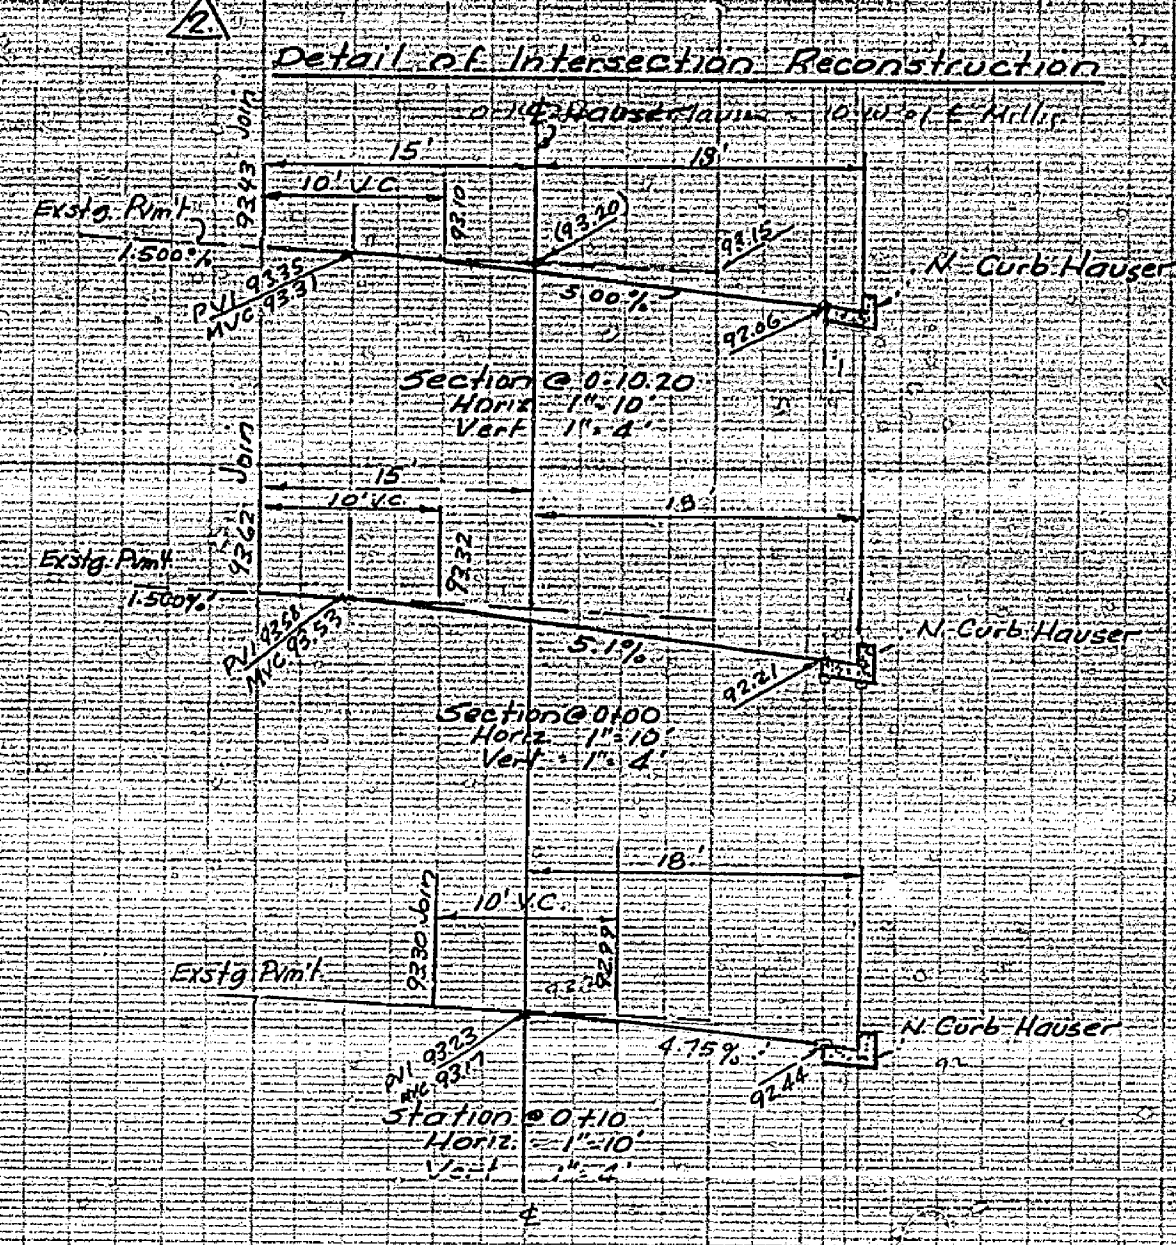 2.
Detail of Intersection Reconstruction
℄ Hauser
15'
18'
93.43 Join
10' V.C.
93.10
(93.20)
93.15
Exstg. Pvm't
1.500%
PVI 93.35
MVC 93.31
5.00%
92.06
N. Curb Hauser
Section @ 0-10.20
Horiz 1"=10'
Vert 1"=4'
15'
18'
93.62 Join
10' V.C.
93.32
Exstg. Pvm't
1.500%
PVI 93.58
MVC 93.53
5.1%
92.21
N. Curb Hauser
Section @ 0+00
Horiz 1"=10'
Vert = 1"=4'
18'
93.30 Join
10' V.C.
92.99
Exstg Pvm't
PVI 93.23
MVC 93.17
4.75%
92.44
N. Curb Hauser
92
Station @ 0+10
Horiz. = 1"=10'
Vert 1"=4'
℄